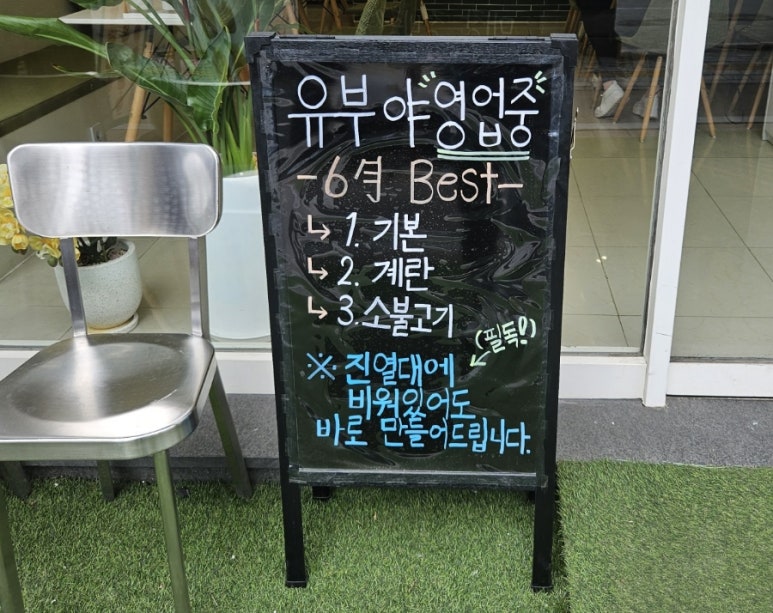 유부야 영업중
-6月 Best-
↳ 1. 기본
↳ 2. 계란
↳ 3. 소불고기
(필독!)
※ 진열대에
비워있어도
바로 만들어드립니다.